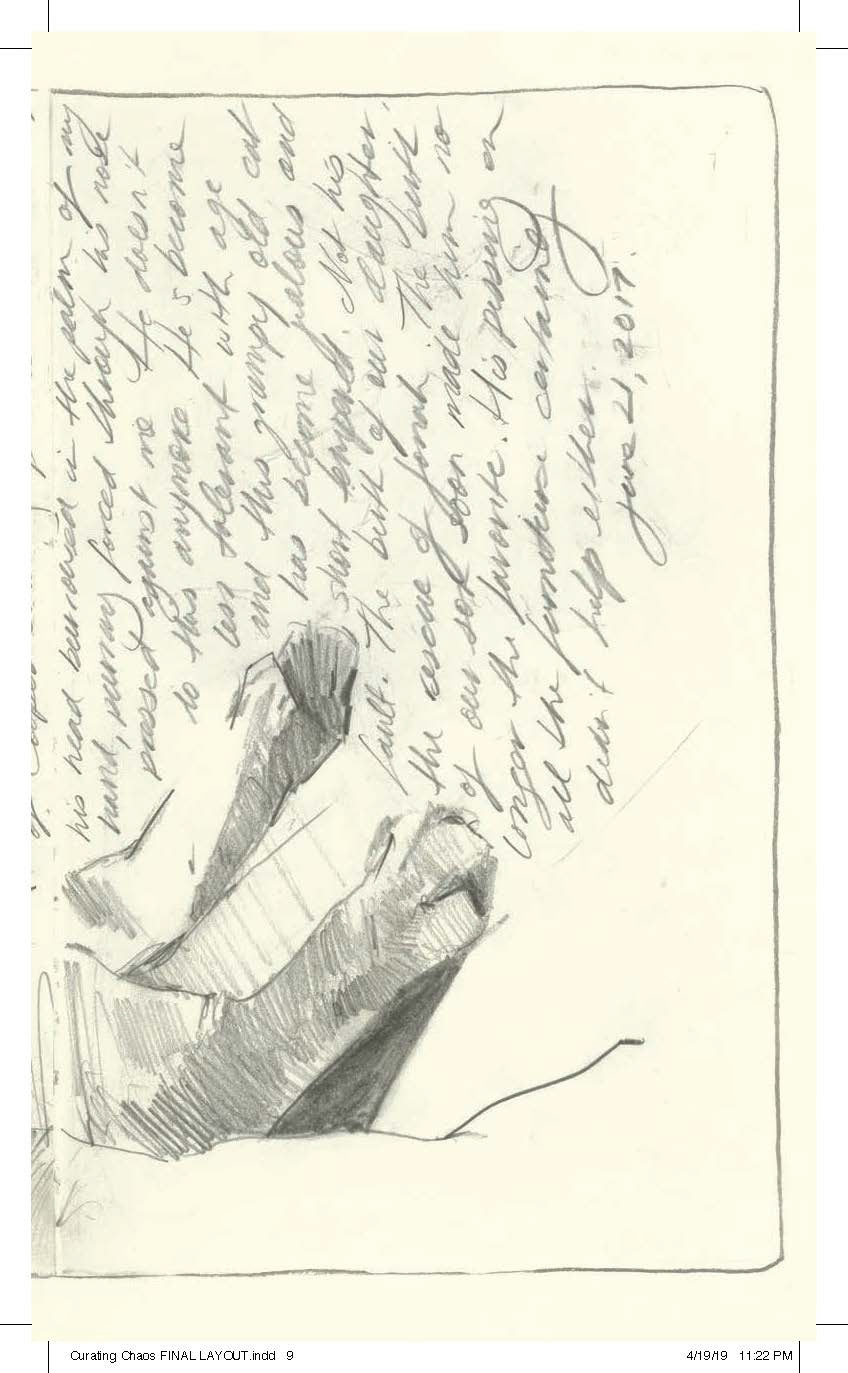 his head burrowed in the palm of my
hand, purring forced through his nose
pressed against me. He doesn't
do this anymore. He's become
less tolerant with age
and this grumpy old cat
has become jealous and
short tempered. Not his
fault. The birth of our daughter,
the rescue of Jonah, The birth
of our son soon made him no
longer the favorite. His pissing on
all the furniture certainly
didn't help either.
June 21, 2017.
Curating Chaos FINAL LAYOUT.indd 9
4/19/19 11:22 PM